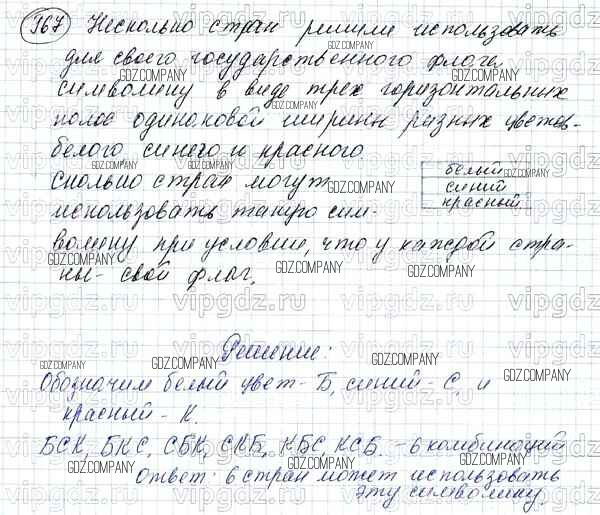 967 Несколько стран решили использовать
для своего государственного флага
символику в виде трех горизонтальных
полос одинаковой ширины разных цветов-
белого, синего и красного.
Сколько стран могут
использовать такую сим-
волику при условии, что у каждой стра-
ны - свой флаг.
белый
синий
красный
Решение:
Обозначим белый цвет - Б, синий - С, и
красный - К.
БСК, БКС, СБК, СКБ, КБС, КСБ. - 6 комбинаций
Ответ: 6 стран может использовать
эту символику.